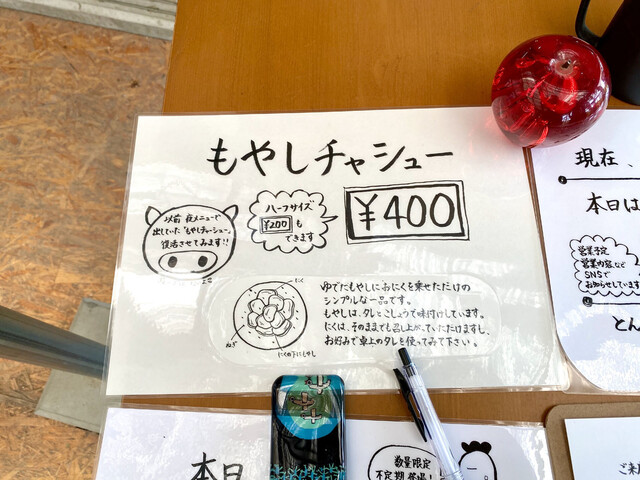 もやしチャシュー
以前 夜メニューで
出していた「もやしチャーシュー」
復活させてみます!!
ハーフサイズ
¥200 も
できます
¥400
にく
ねぎ
にくの下にもやし
ゆでたもやしにおにくを乗せただけの
シンプルな一品です。
もやしは、タレとこしょうで味付けしています。
にくは、そのままでも召し上がっていただけますし、
お好みで卓上のタレを使ってみて下さい。
現在、
本日は
営業予定
営業内容など
SNSで
お知らせしています
とん
本日
数量限定
不定期登場!
ご来